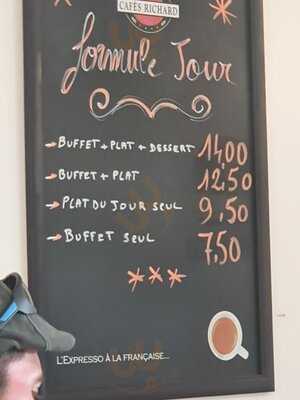 CAFÉS RICHARD
Formule Jour
BUFFET + PLAT + DESSERT 14,00
BUFFET + PLAT 12,50
PLAT DU JOUR SEUL 9,50
BUFFET SEUL 7,50
L'EXPRESSO À LA FRANÇAISE...